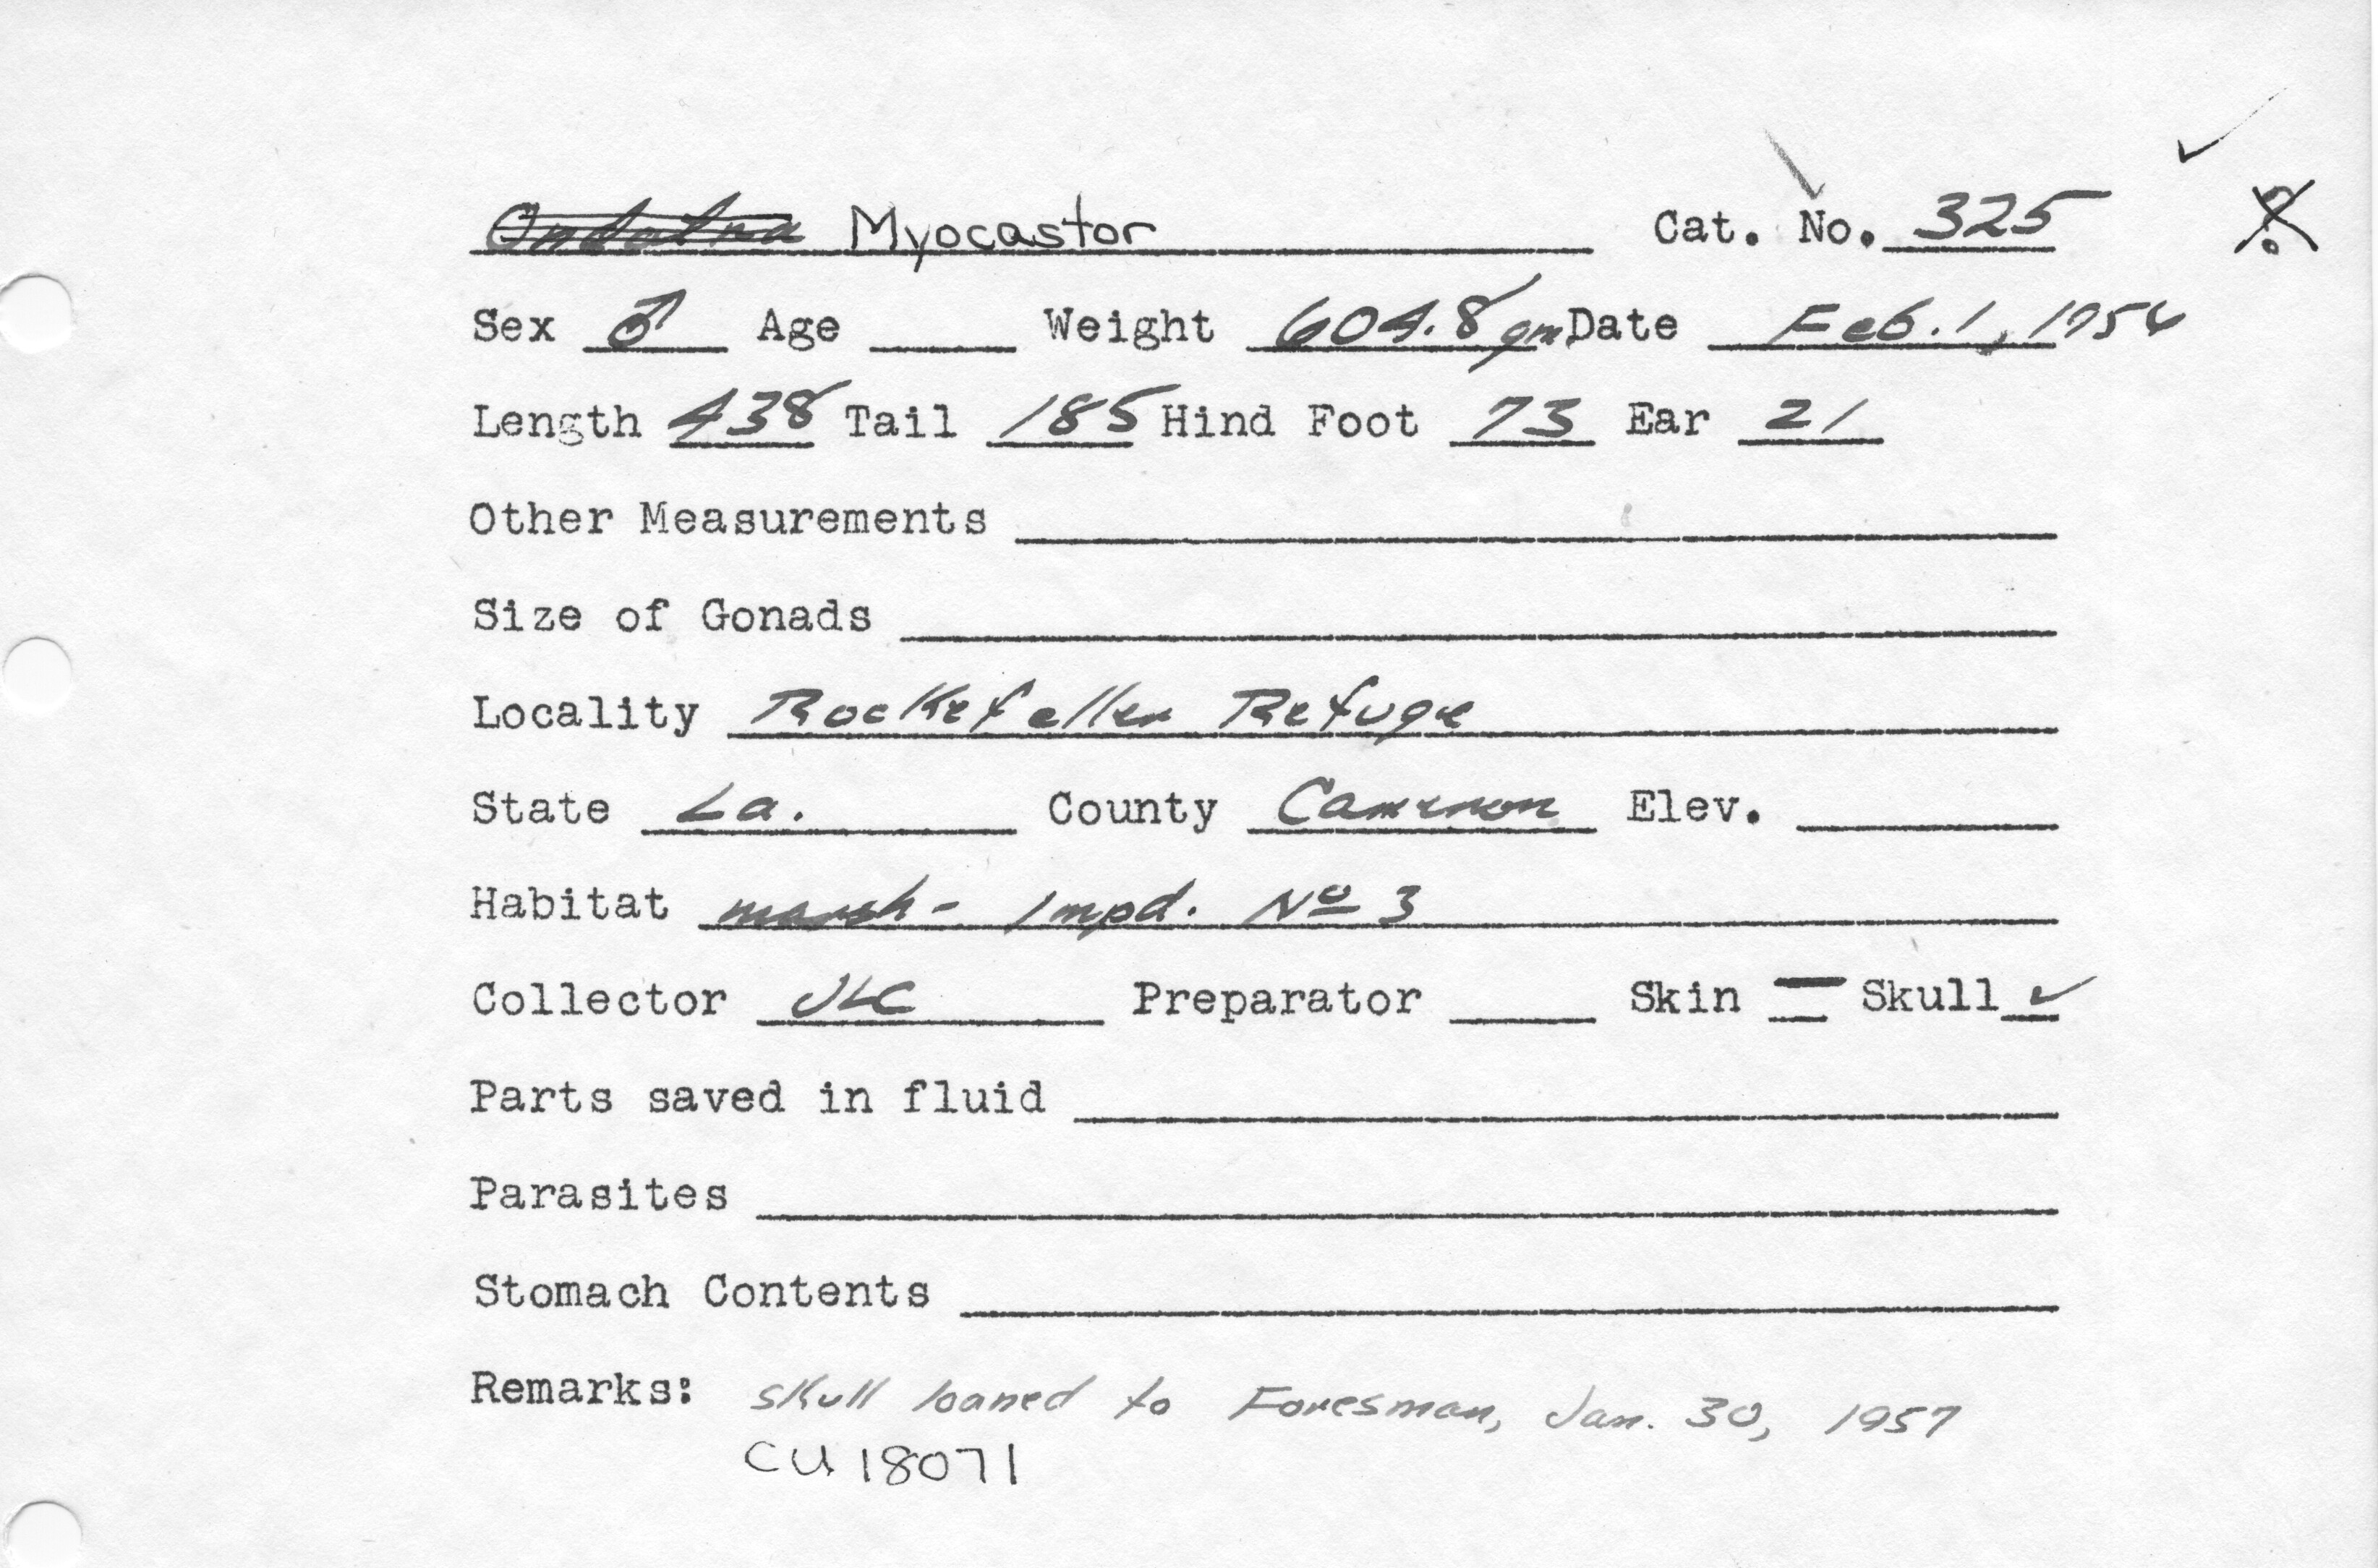 Ondatra Myocastor Cat. No. 325
Sex ♂ Age Weight 604.8 gm Date Feb. 1, 1956
Length 438 Tail 185 Hind Foot 73 Ear 21
Other Measurements
Size of Gonads
Locality Rockefeller Refuge
State La. County Cameron Elev.
Habitat marsh - Impd. No 3
Collector JLC Preparator Skin — Skull ✓
Parts saved in fluid
Parasites
Stomach Contents
Remarks: skull loaned to Foresman, Jan. 30, 1957
CU 18071